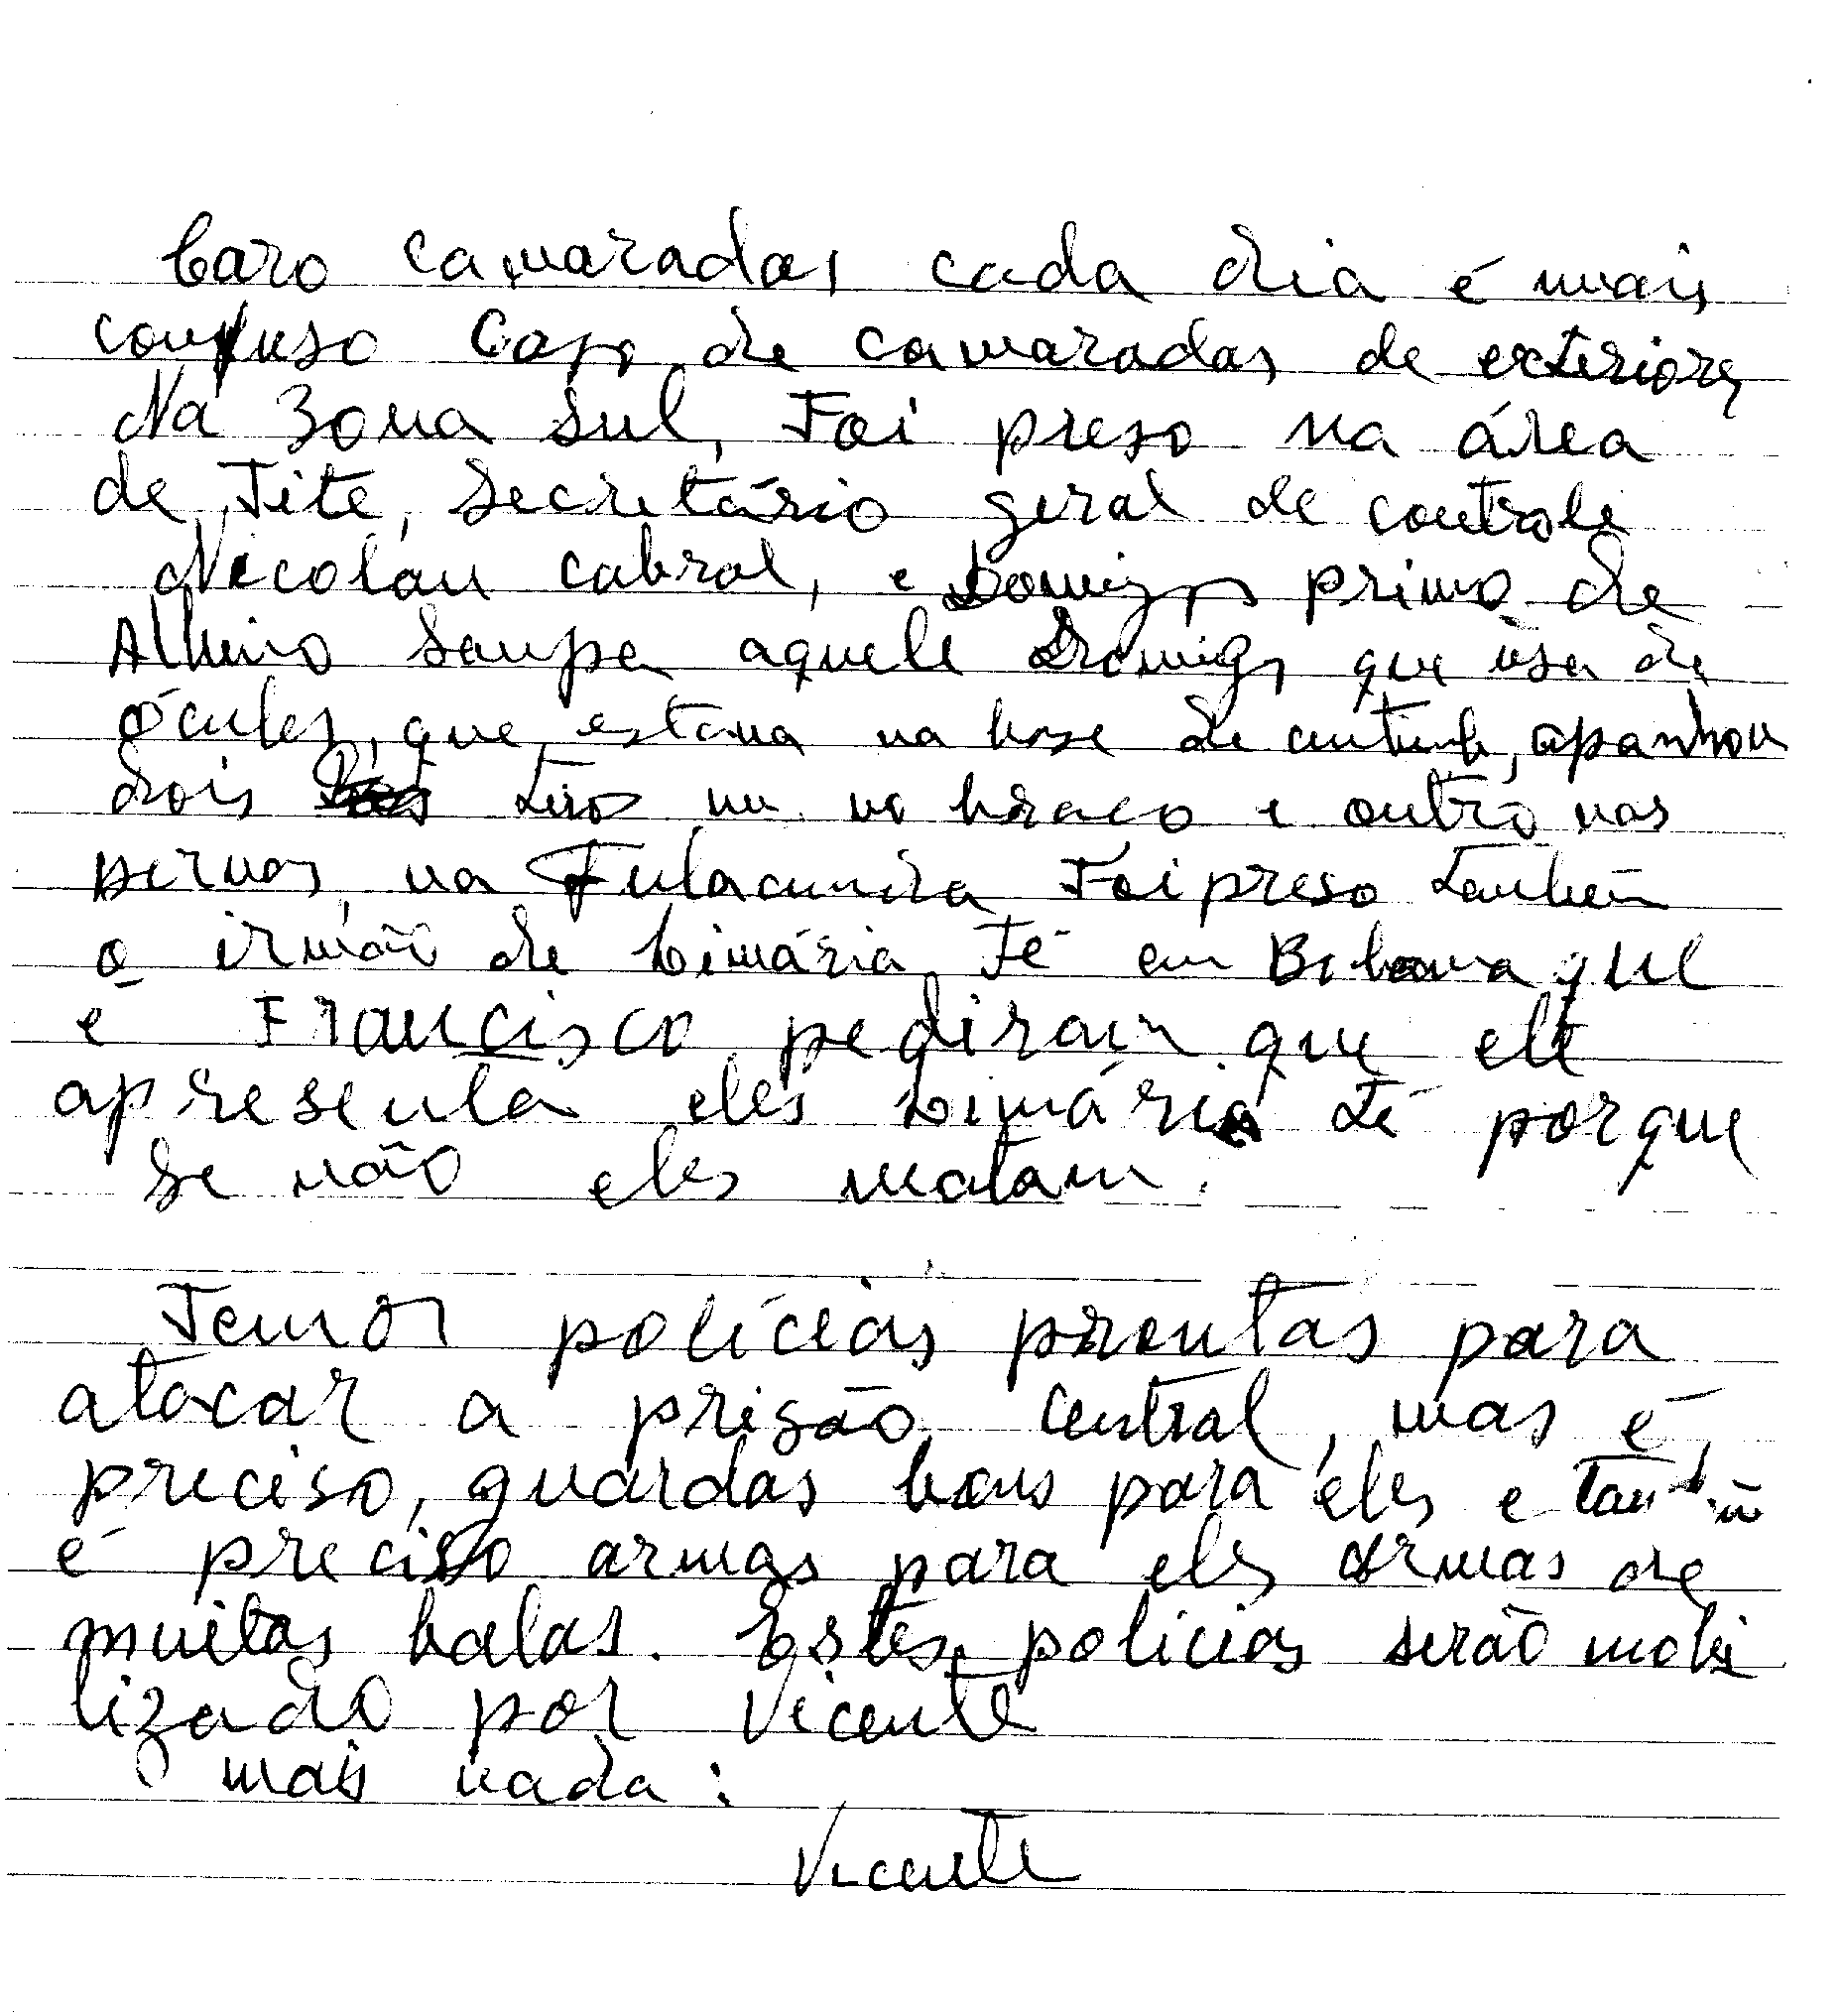 Caro camaradas cada dia é mais
confuso Caso de camaradas de exteriores
Na Zona Sul, Foi preso na área
de Tite, Secretário geral de controle
Nicolau Cabral, e Domingos primo de
Albino Sampa aquele Domingos que usa de
óculos, que estava na base de apanhou
dois tiros um no braço e outro nas
pernas, na Fulacunda Foi preso também
o irmão de Limária Té em Bolama que
é Francisco pediram que ele
apresenta eles Limária Té porque
se não eles matam.
Temos polícias prontas para
atacar a prisão central, mas é
preciso, guardas bons para eles e também
é preciso armas para eles armas de
muitas balas. Estes policias serão mobi
lizado por Vicente
mais nada:
Vicente